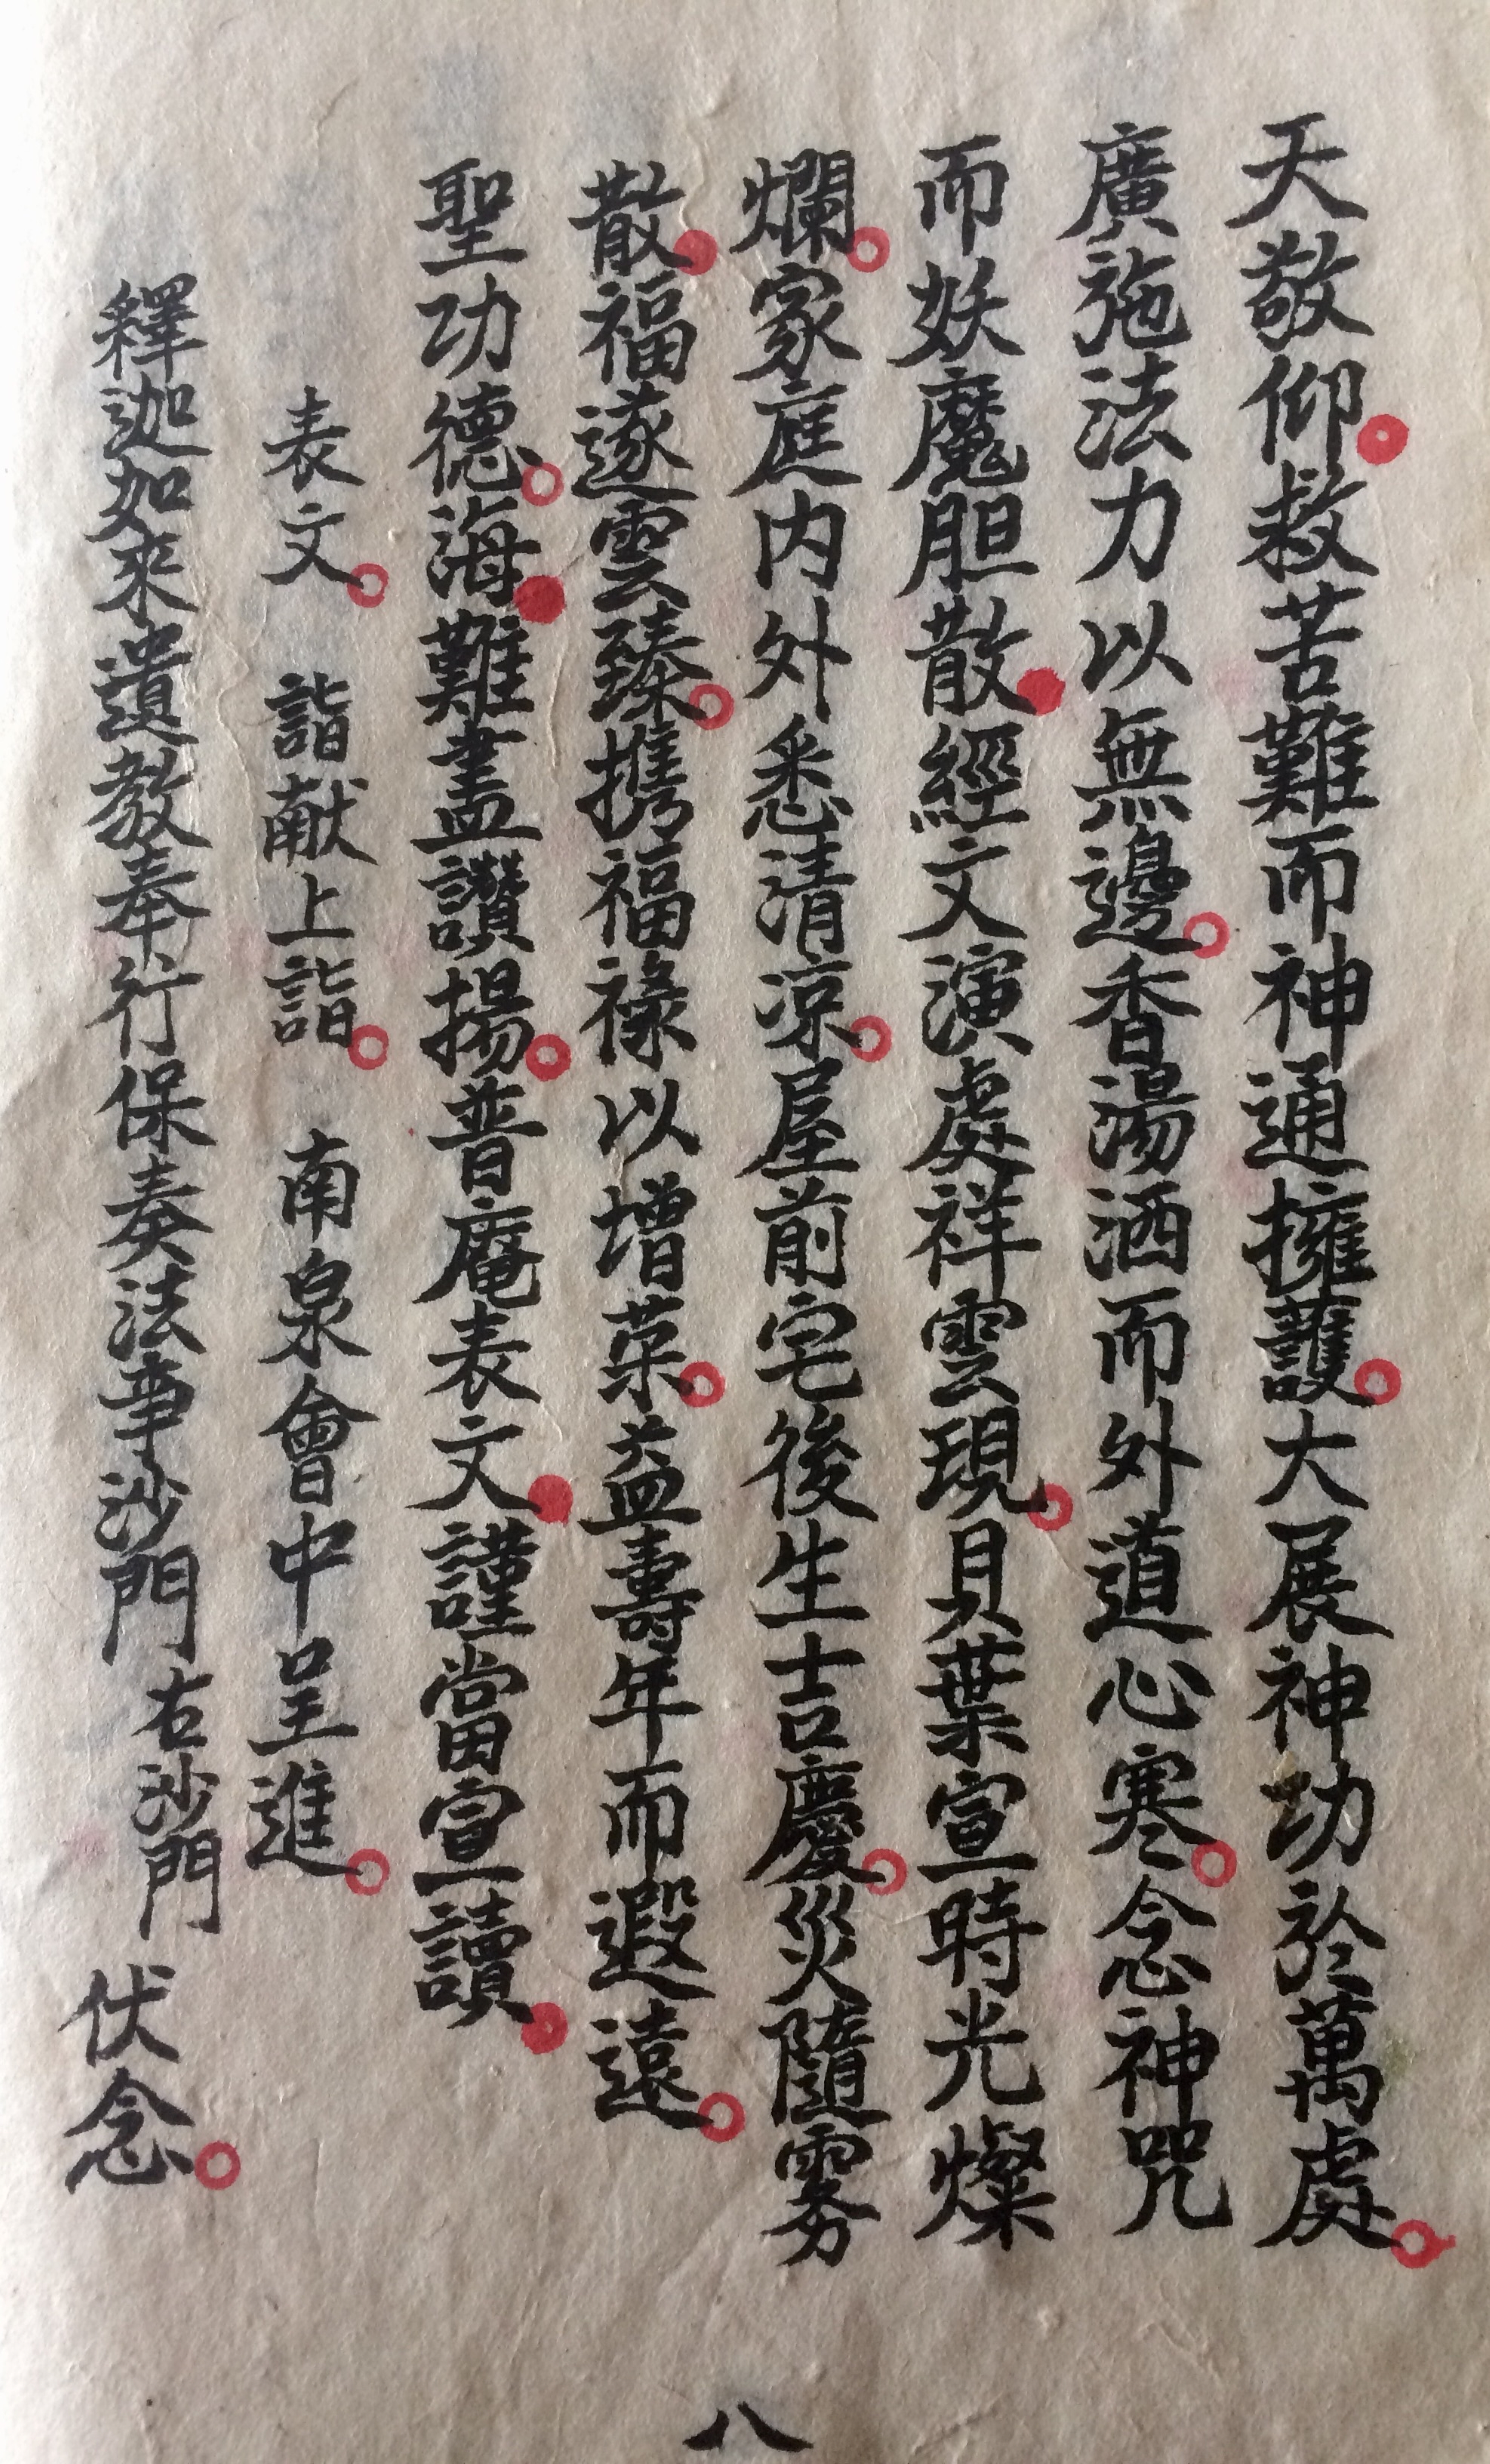 天敬仰救苦難而神通擁護大展神功於萬處
廣施法力以無邊香湯洒而外道心寒念神咒
而妖魔胆散經文演處祥雲現貝葉宣時光燦
爛家庭内外悉清凉屋前宅後生吉慶災隨雾
散福遂雲臻携福祿以增荣益壽年而遐遠
聖功德海難盡讚揚普庵表文謹當宣讀
表文 詣献上詣 南泉會中呈進
釋迦如來遺教奉行保奏法事沙門右沙門 伏念
八